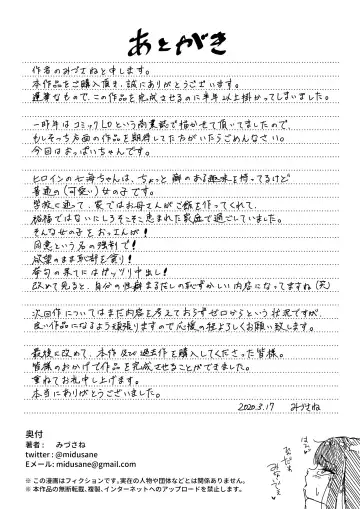 あとがき
作者のみづさねと申します。
本作品をご購入頂き、誠にありがとうございます。
遅筆なもので、この作品を完成させるのに半年以上掛かってしまいました。
一昨年はコミックLOという商業誌で描かせて頂いてましたので、
もしそっち方面の作品を期待してた方がいたらごめんなさい。
今回はおっぱいちゃんです。
ヒロインの七海ちゃんは、ちょっと癖のある趣味を持ってるけど
普通の(可愛い)女の子です。
学校に通って、家ではお母さんがご飯を作ってくれて、
裕福ではないにしろそこそこ恵まれた家庭で過ごしていました。
そんな女の子をおっさんが!
同意という名の強制で!
欲望のまま恥辱を貪り!
挙句の果てにはガッツリ中出し!
改めて見ると、自分の性癖まるだしの恥ずかしい内容になってますね(笑)
次回作についてはまだ内容を考えておらずゼロからという状況ですが、
良い作品になるよう頑張りますので応援の程よろしくお願い致します。
最後に改めて、本作及び過去作を購入してくださった皆様。
皆様のおかげで作品を完成させることができました。
重ねてお礼申し上げます。
本当にありがとうございました。
2020.3.17 みづさね
奥付
著者: みづさね
twitter : @midusane
Eメール: midusane@gmail.com
※ この漫画はフィクションです。実在の人物や団体などとは関係ありません。
※ 本作品の無断転載、複製、インターネットへのアップロードを禁止します。